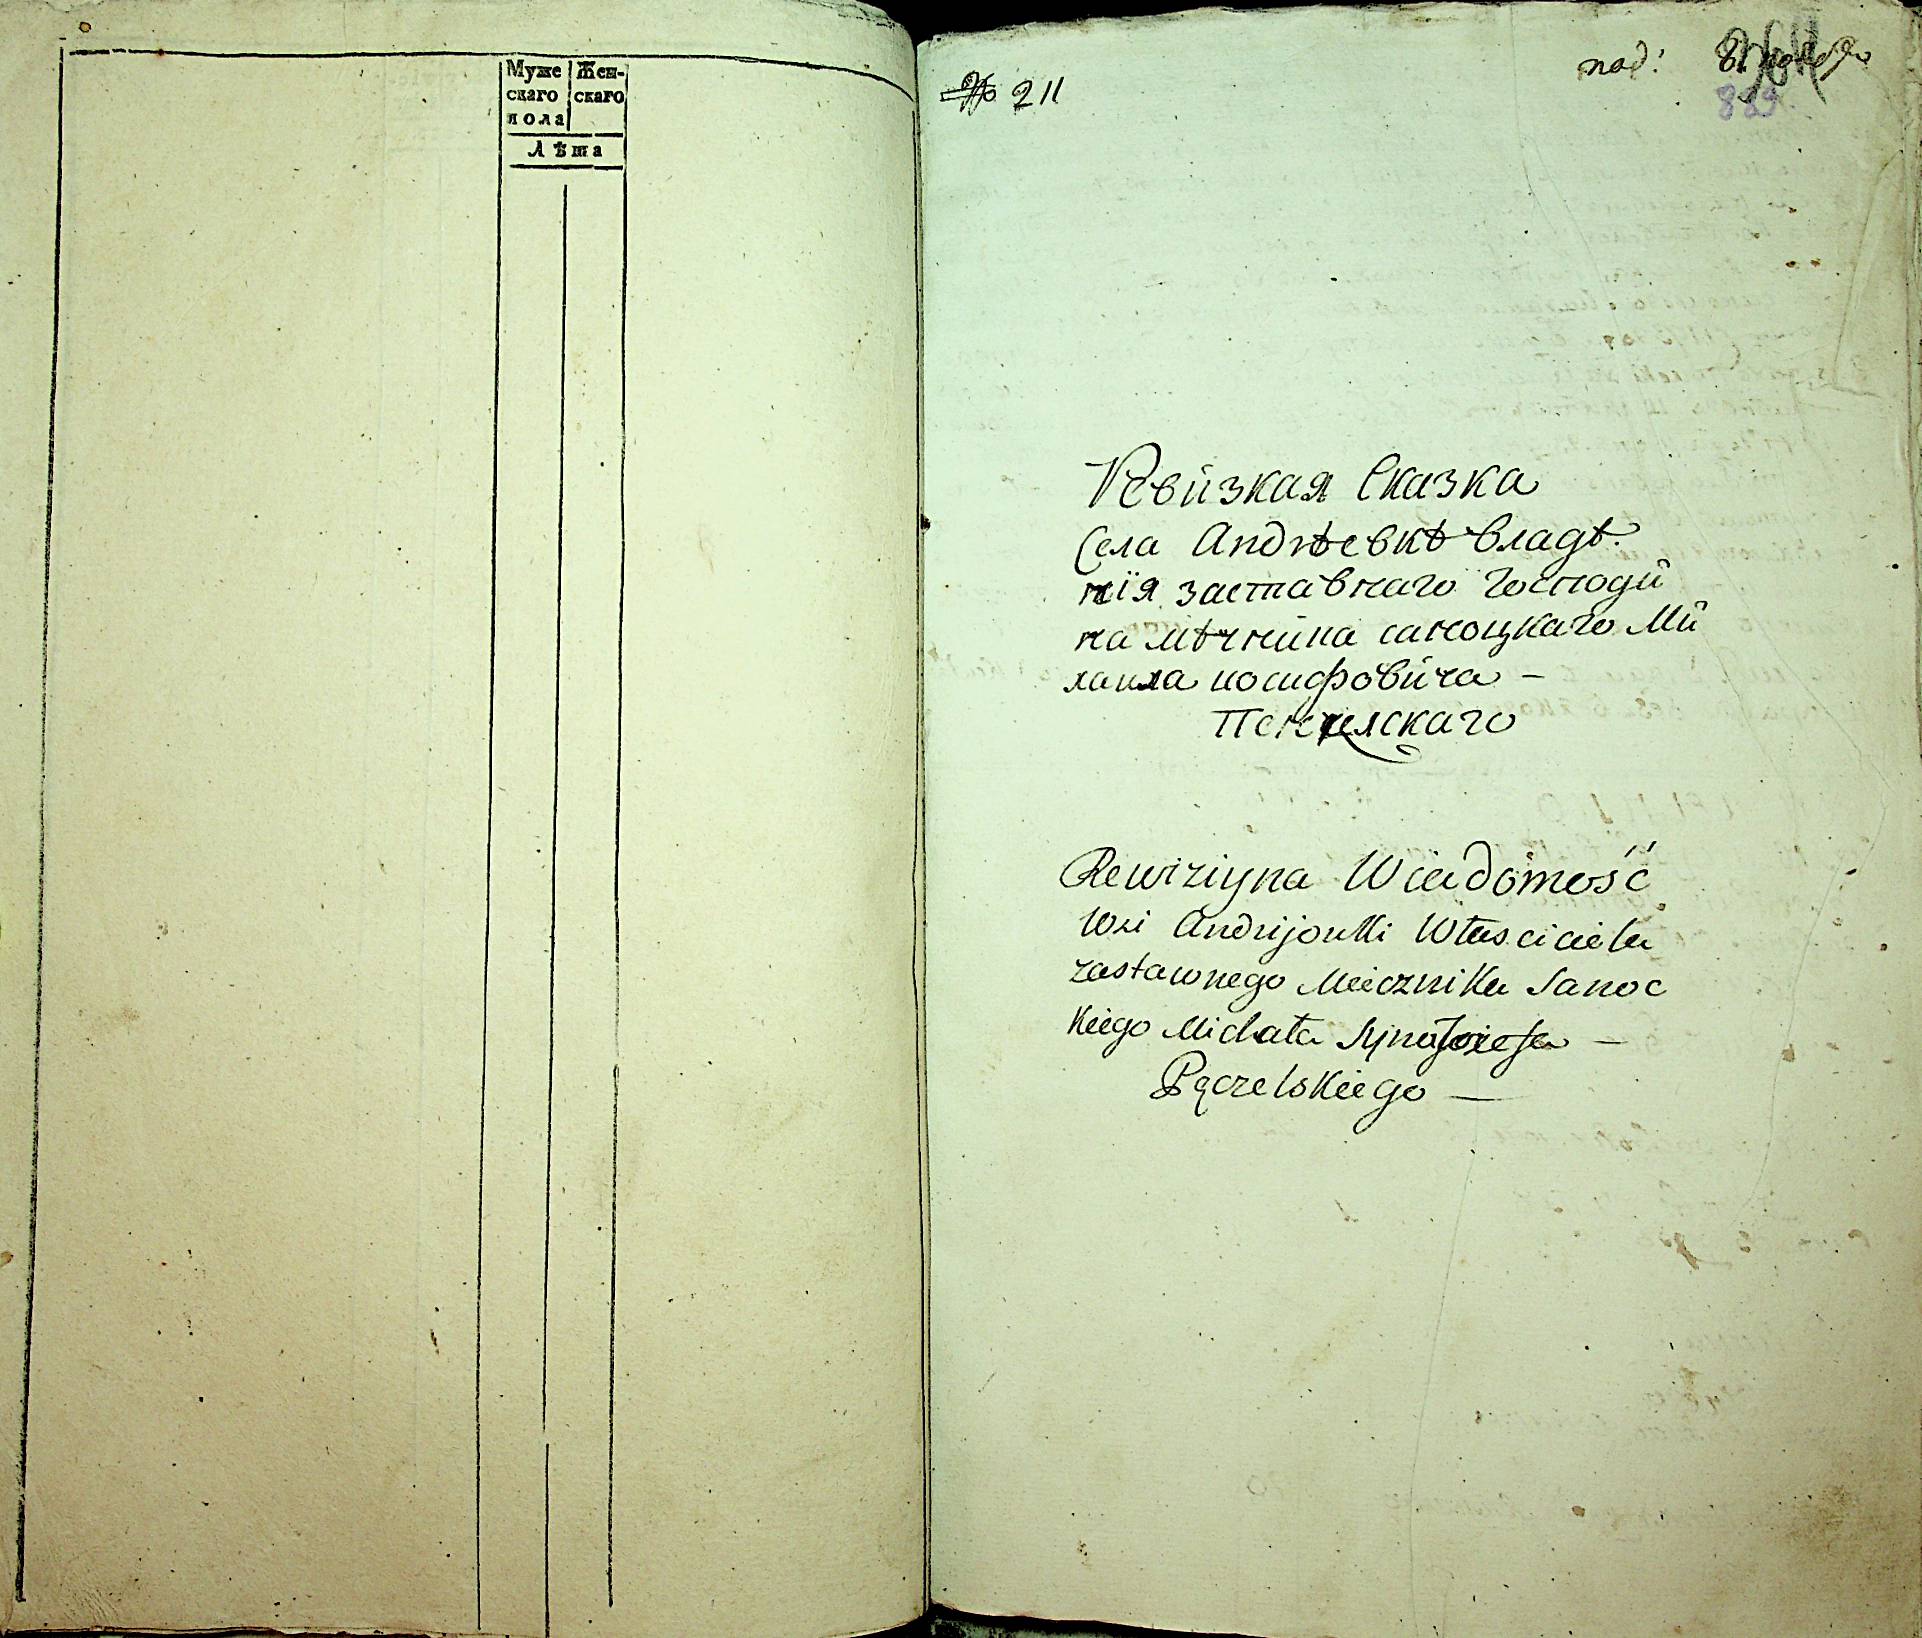 Муже Жен-
скаго скаго
пола
Лѣта
№ 211
под:
889
Ревизкая Сказка
Села Андрѣевкѣ владѣ:
нія заставнаго Господи
на мѣчника саноцкаго Ми
хаила иосифовича –
Пенчелскаго
Rewiziyna Wiadomość
Wsi Andrijowki Własciciela
zastawnego Miecznika Sanoc
kiego Michała Syna Jozefa —
Pączelskiego —